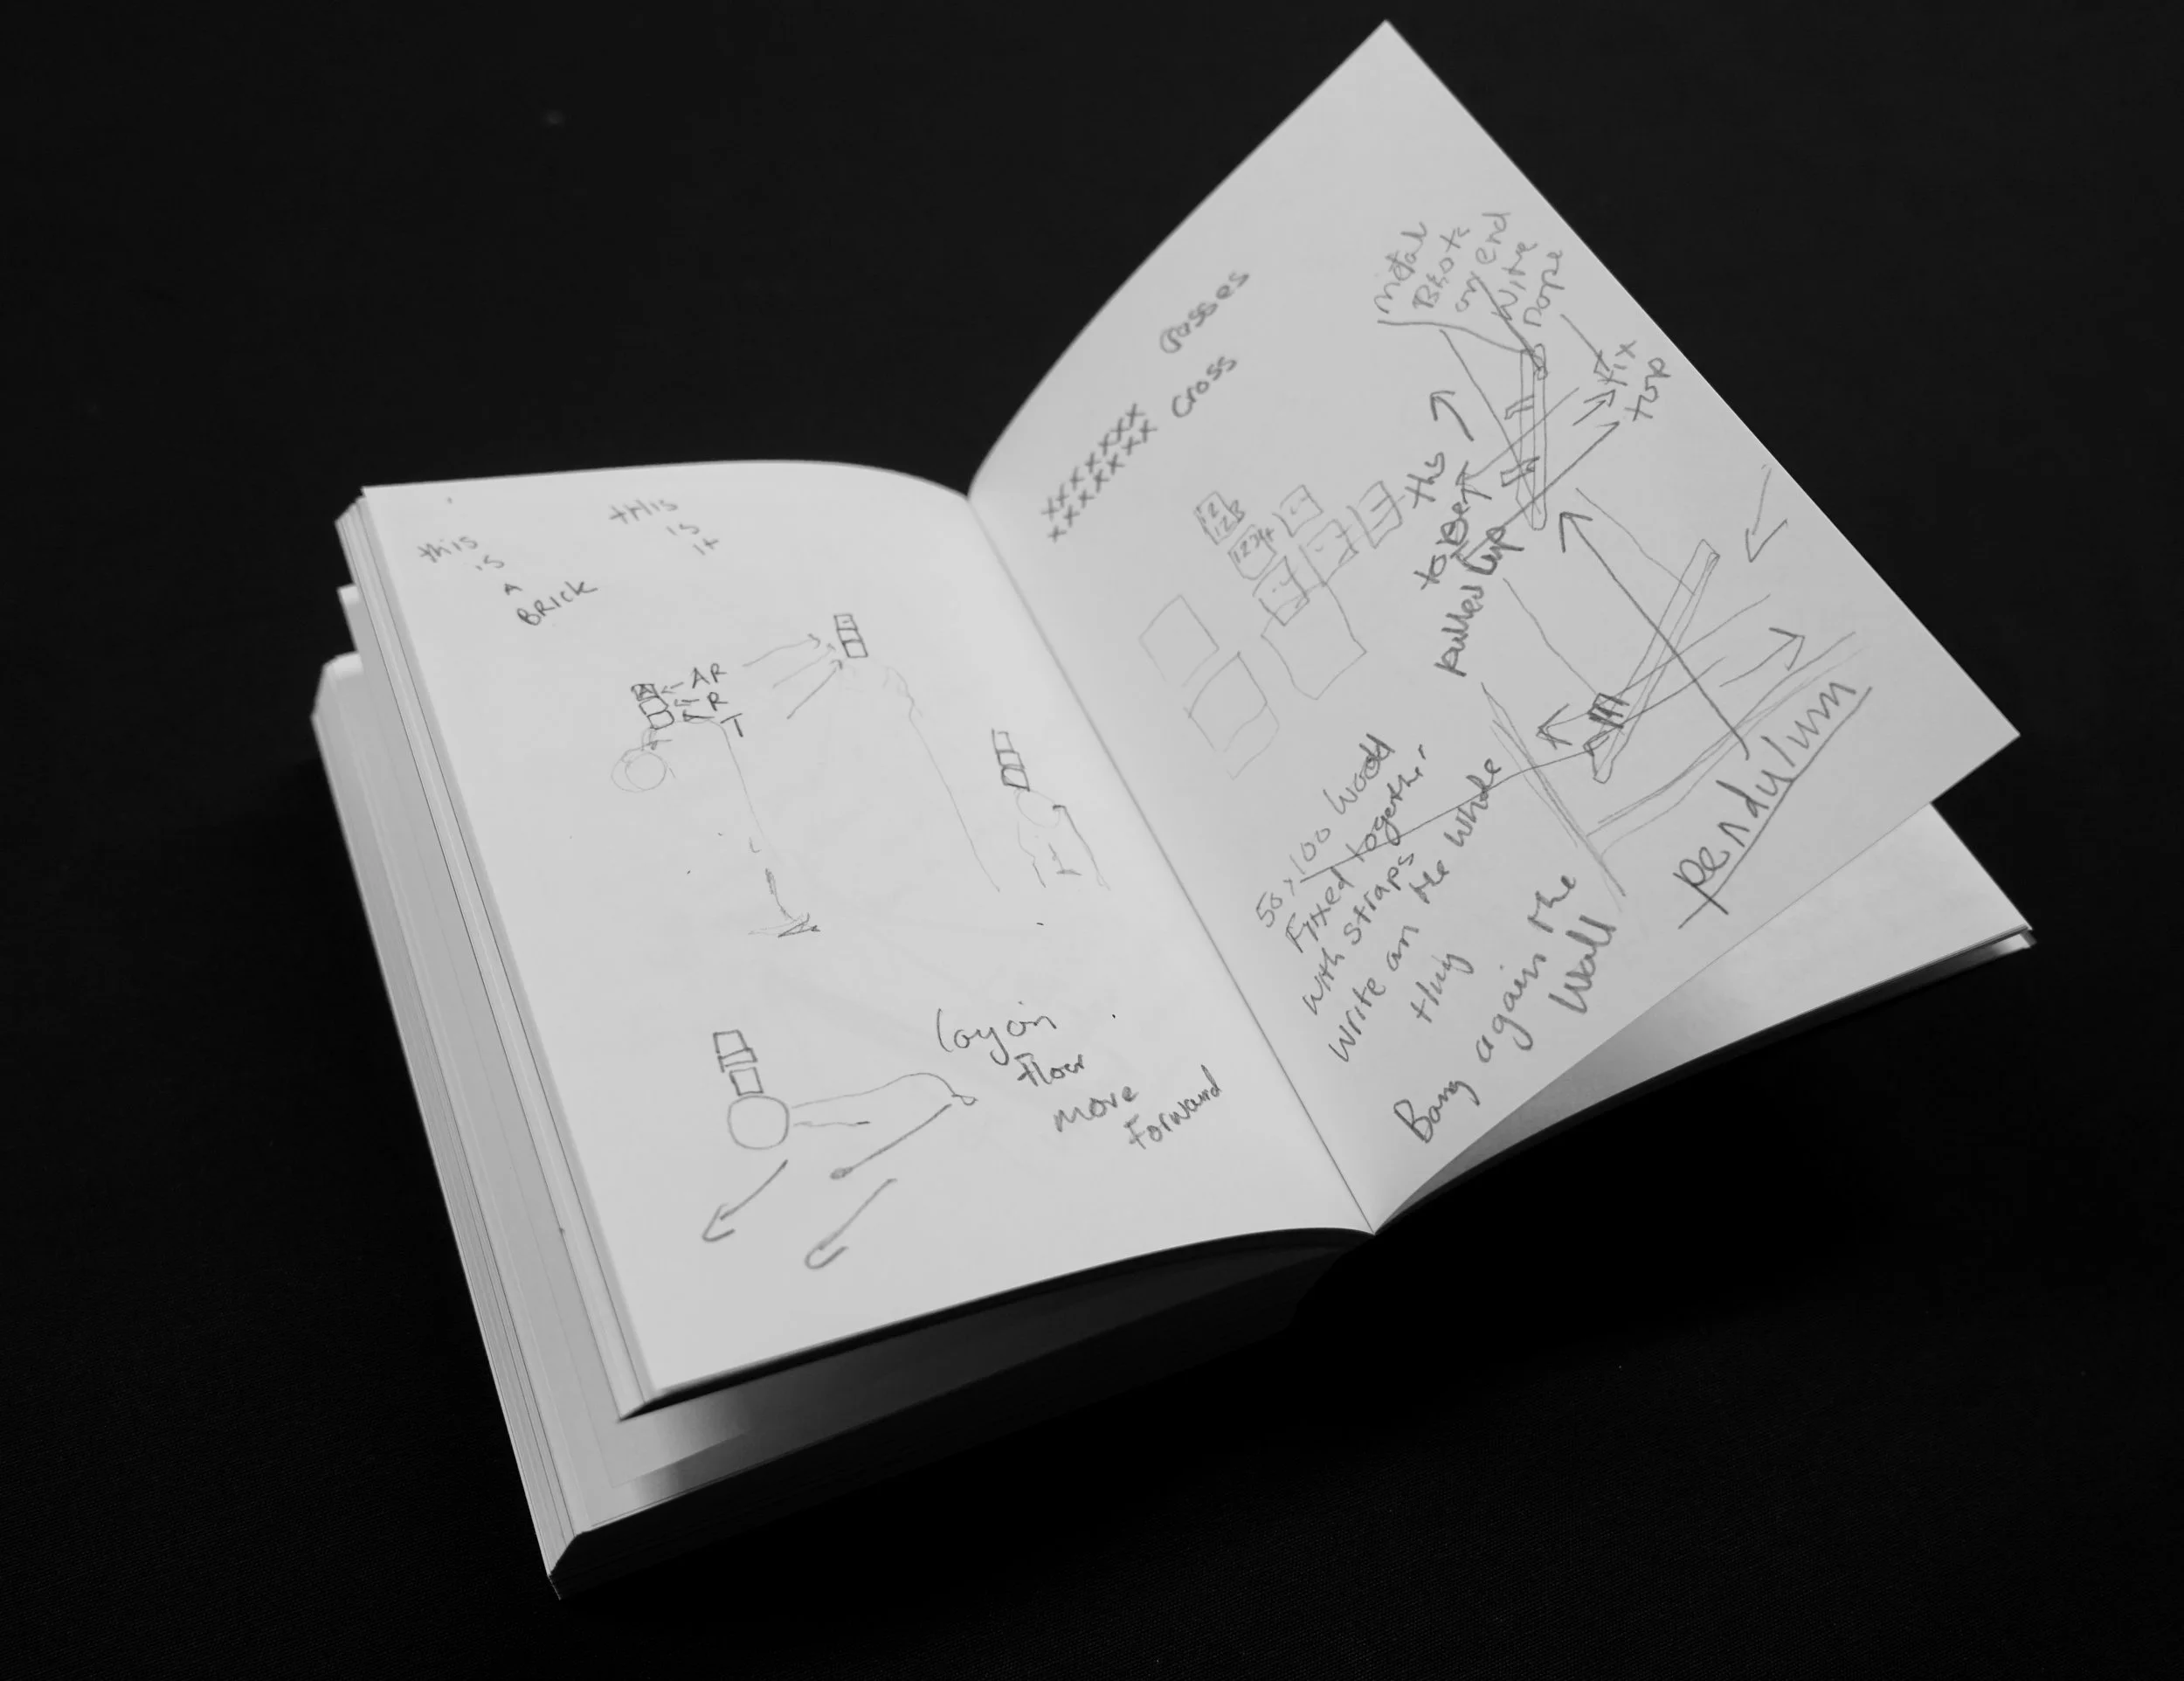 this
is
A
BRICK
this
is
it
A ← AR
← R
← T
lay on
floor
move
Forward
XXXXXXXX
XXXXXXXX Cross
metal
on end
with
rope
Fix
top
this
to Be
pulled up
12
123
1234
50 x 100 Wood
Fixed together
with straps
write on the whole
thing
Bang again the
Wall
pendylum